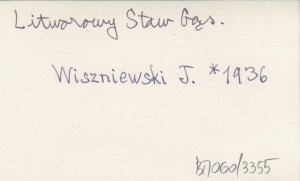 Litworowy Staw Gąs.
Wiszniewski J. *1936
B/060/3355